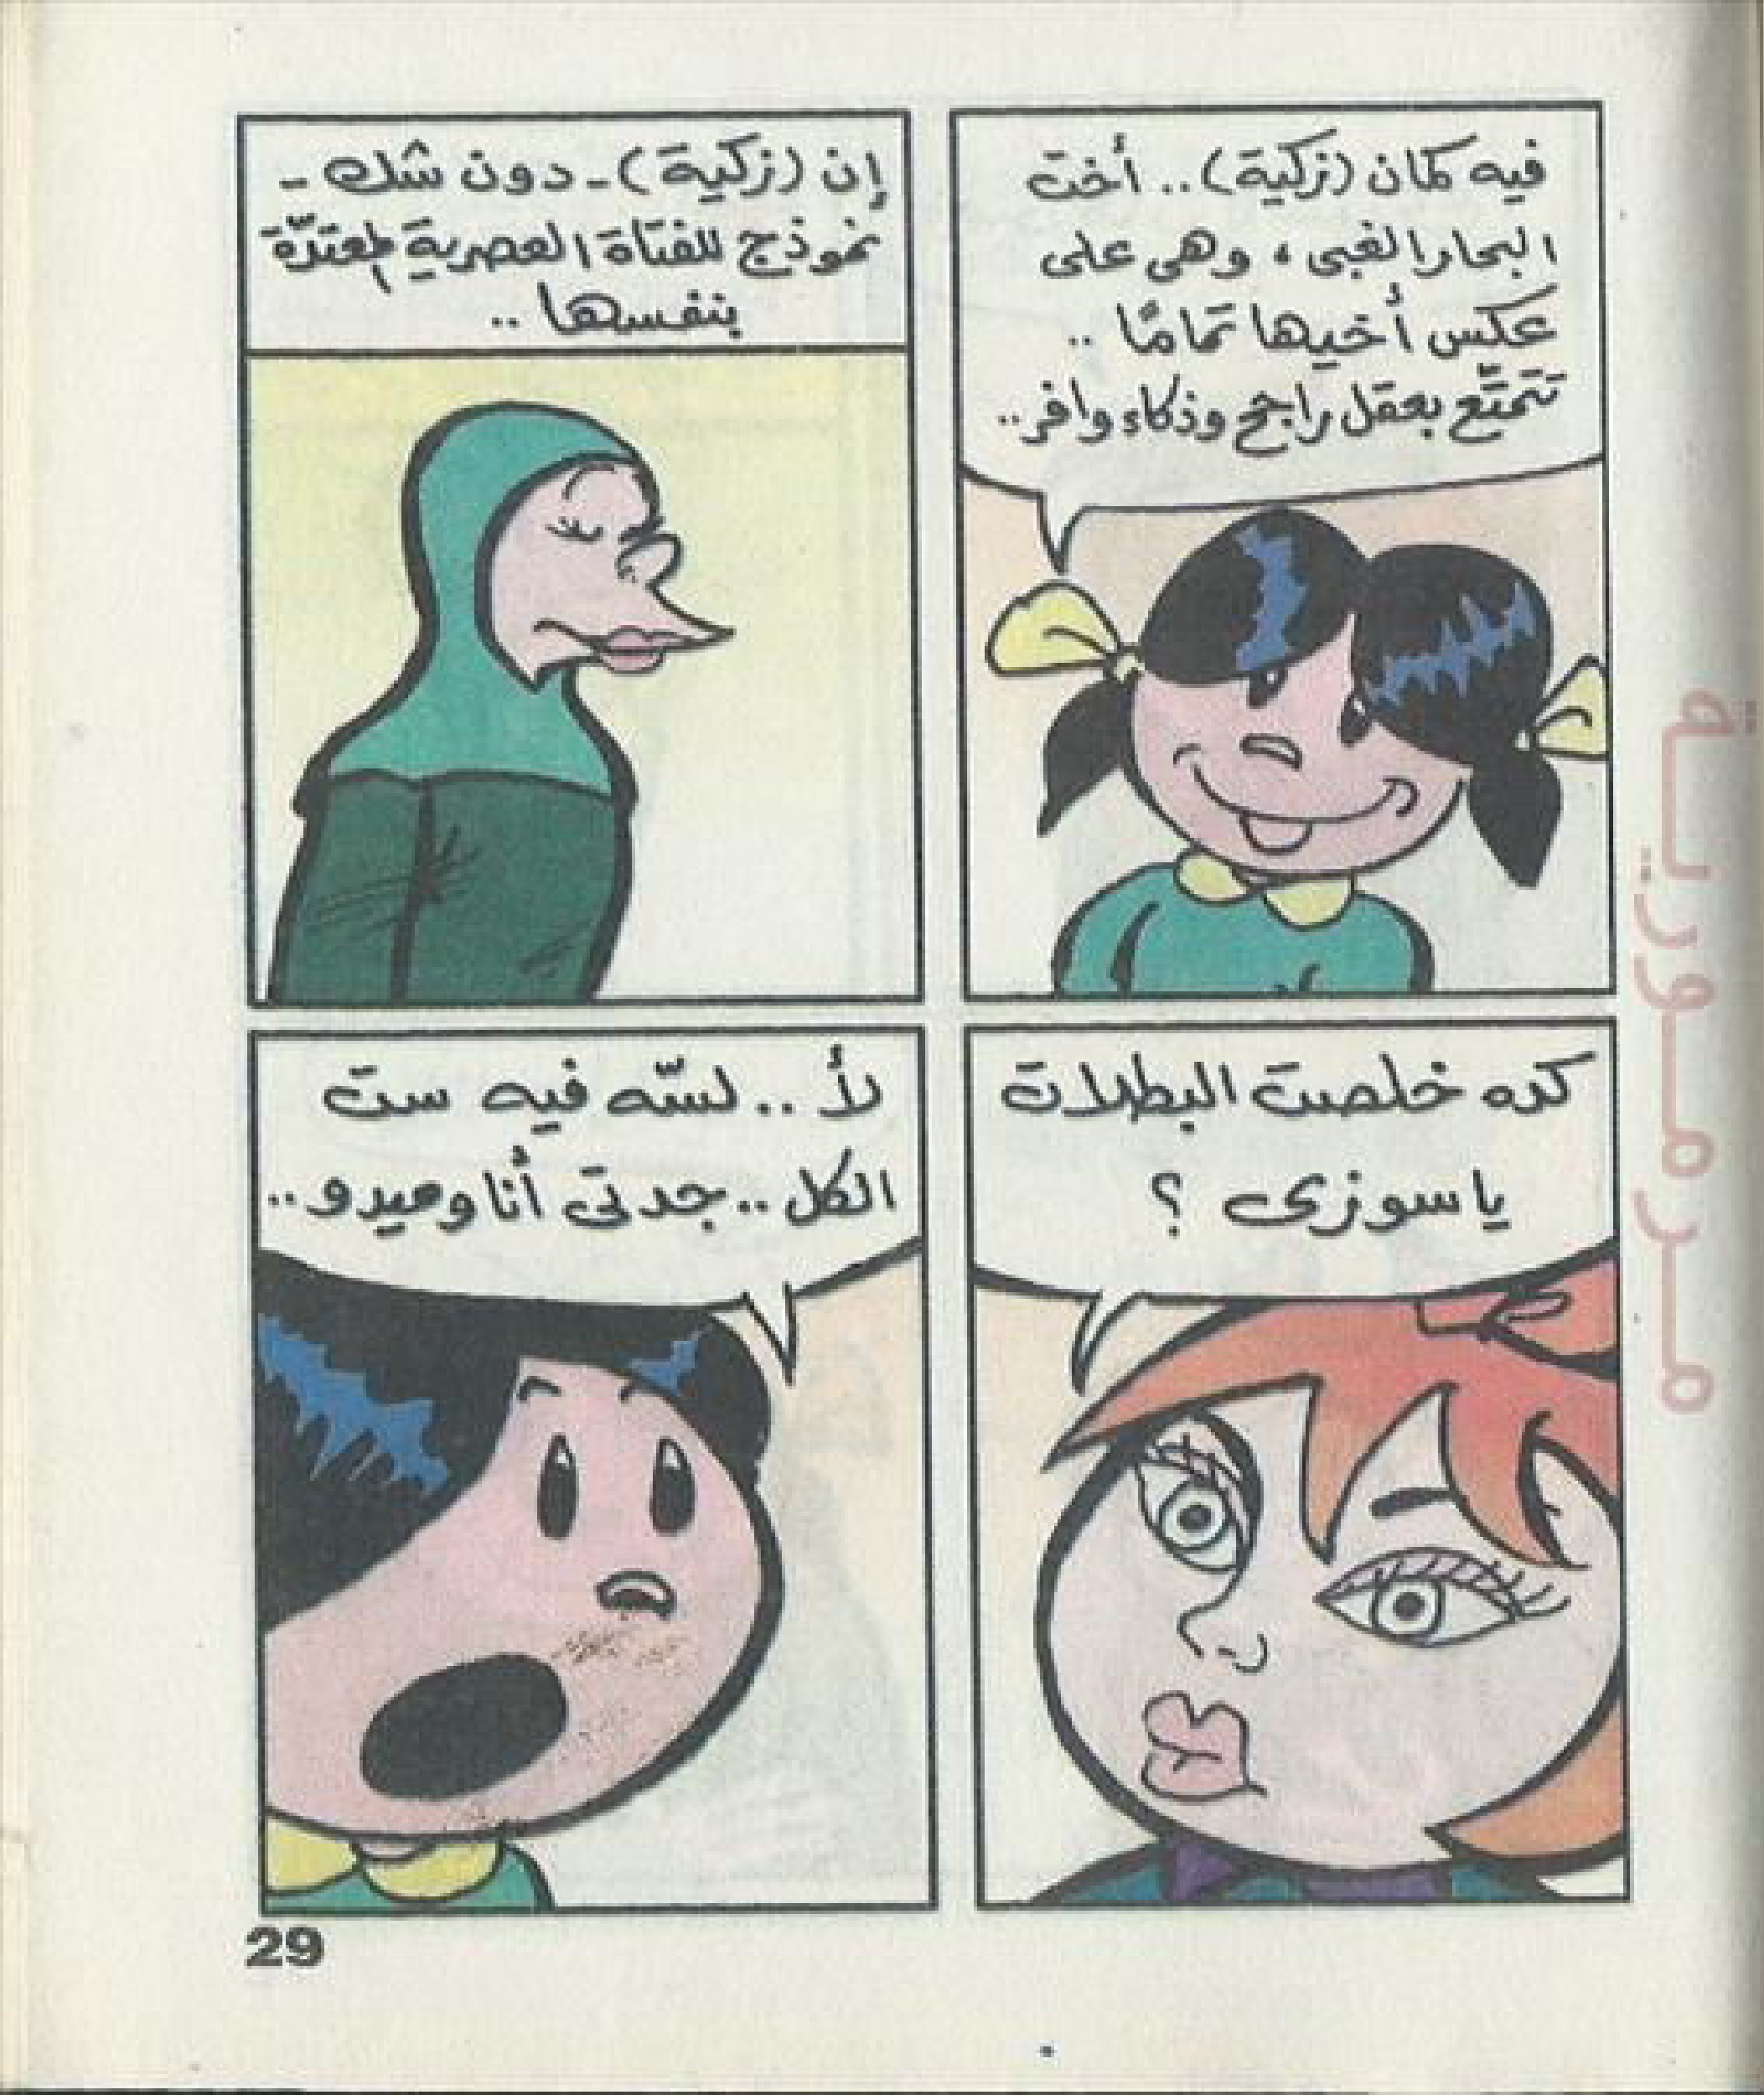 فيه كمان (زكية).. أخت
البحار الغبى، وهى على
عكس أخيها تمامًا ..
تتمتّع بعقل راجح وذكاء وافر..
إن (زكية) - دون شك -
نموذج للفتاة العصرية المعتدّة
بنفسها ..
كده خلصت البطلات
يا سوزى ؟
لأ .. لسّه فيه ست
الكل .. جدتى أنا وميدو ..
29
مرمورية